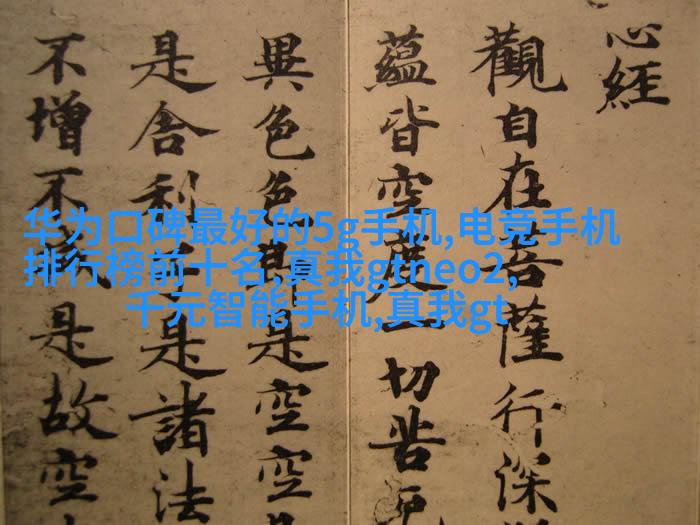 心經
觀自在菩薩行深
蘊皆空度一切苦厄
異色色即是空空
是舍利子是諸法
不增不減是故空
华为口碑最好的5g手机,电竞手机
排行榜前十名,真我gtneo2,
千元智能手机,真我gt